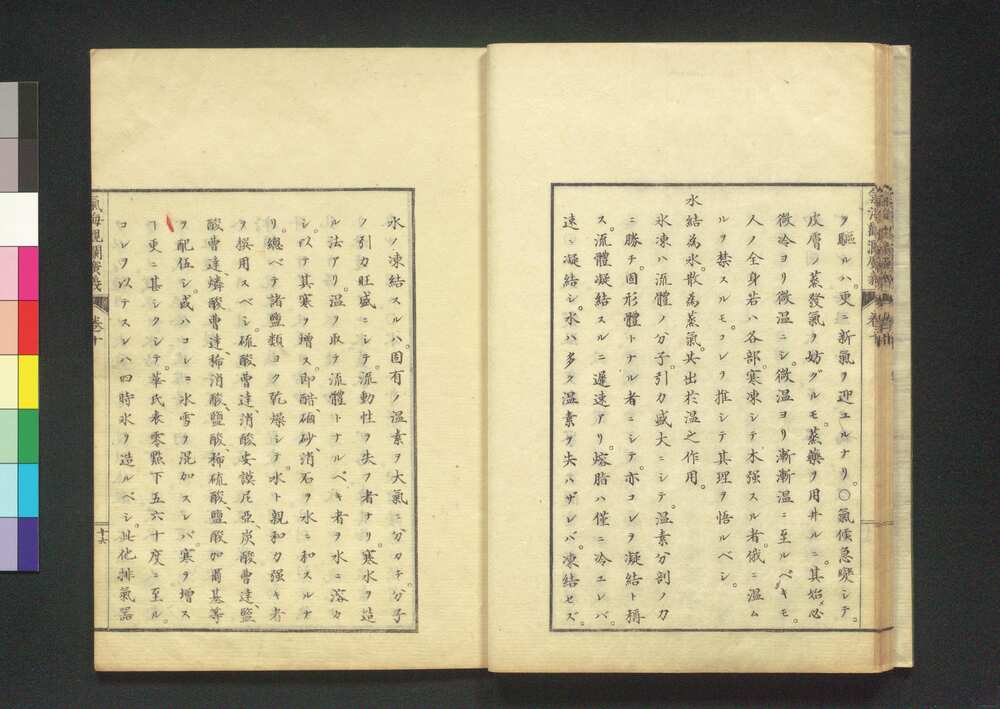 ヲ驅ルハ。更ニ新氣ヲ迎ユルナリ。○氣候急變シテ。
皮膚ノ蒸發氣ヲ妨グルモ。蒸藥ヲ用井ルニ。其始必
微冷ヨリ微温ニシ。微温ヨリ漸漸温ニ至ルベキモ。
人ノ全身若ハ各部寒凍シテ木强スル者。俄ニ温ム
ルヲ禁スルモ。コレヲ推シテ其理ヲ悟ルベシ。
水結為氷。散為蒸氣。共出於温之作用。
氷凍ハ流體ノ分子。引力盛大ニシテ。温素分剖ノ力
ニ勝チ。固形體トナル者ニシテ。亦コレヲ凝結ト稱
ス。流體凝結スルニ遲速アリ。熔脂ハ僅ニ冷エレバ。
速ニ凝結シ。水ハ多ク温素ヲ失ハザレバ。凍結セズ。
氣海觀瀾廣義
卷十
水ノ凍結スルハ。固有ノ温素ヲ大氣ニ分カチ。分子
ノ引力旺盛ニシテ。流動性ヲ失フ者ナリ。寒水ヲ造
ル法アリ。温ヲ取テ流體トナルベキ者ヲ水ニ溶カ
シ。以テ其寒ヲ增ス。即醋、硇砂、消石ヲ水ニ和スルナ
リ。總ベテ諸鹽類ヨク乾燥シテ。水ト親和力强キ者
ヲ撰用スベシ。硫酸曹達、消酸安謨尼亞、炭酸曹達、鹽
酸曹達、燐酸曹達、稀消酸、鹽酸、稀硫酸、鹽酸加爾基等
ヲ配伍シ。或ハコレニ氷雪ヲ混加スレバ。寒ヲ增ス
ヿ更ニ甚シクシテ。華氏表零點下五六十度ニ至ル。
コレヲ以テスレハ四時氷ヲ造ルベシ。此他排氣器
氣海觀瀾廣義
卷十
十六